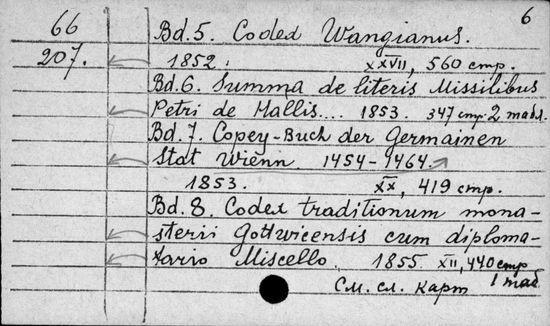 6
66 Bd. 5. Codex Wangianus.
207. 1852. XXVII, 560 стр.
Bd. 6. Summa de literis Missilibus
Petri de Hallis... 1853. 347 стр. 2 табл.
Bd. 7. Copey-Buch der Germainen
Stat Wienn. 1454-1464.
1853. XX, 419 стр.
Bd. 8. Codex traditionum mona-
sterii Gottwicensis cum diploma-
tario Miscello. 1855. XII, 440 стр
1 таб.
См. сл. карт